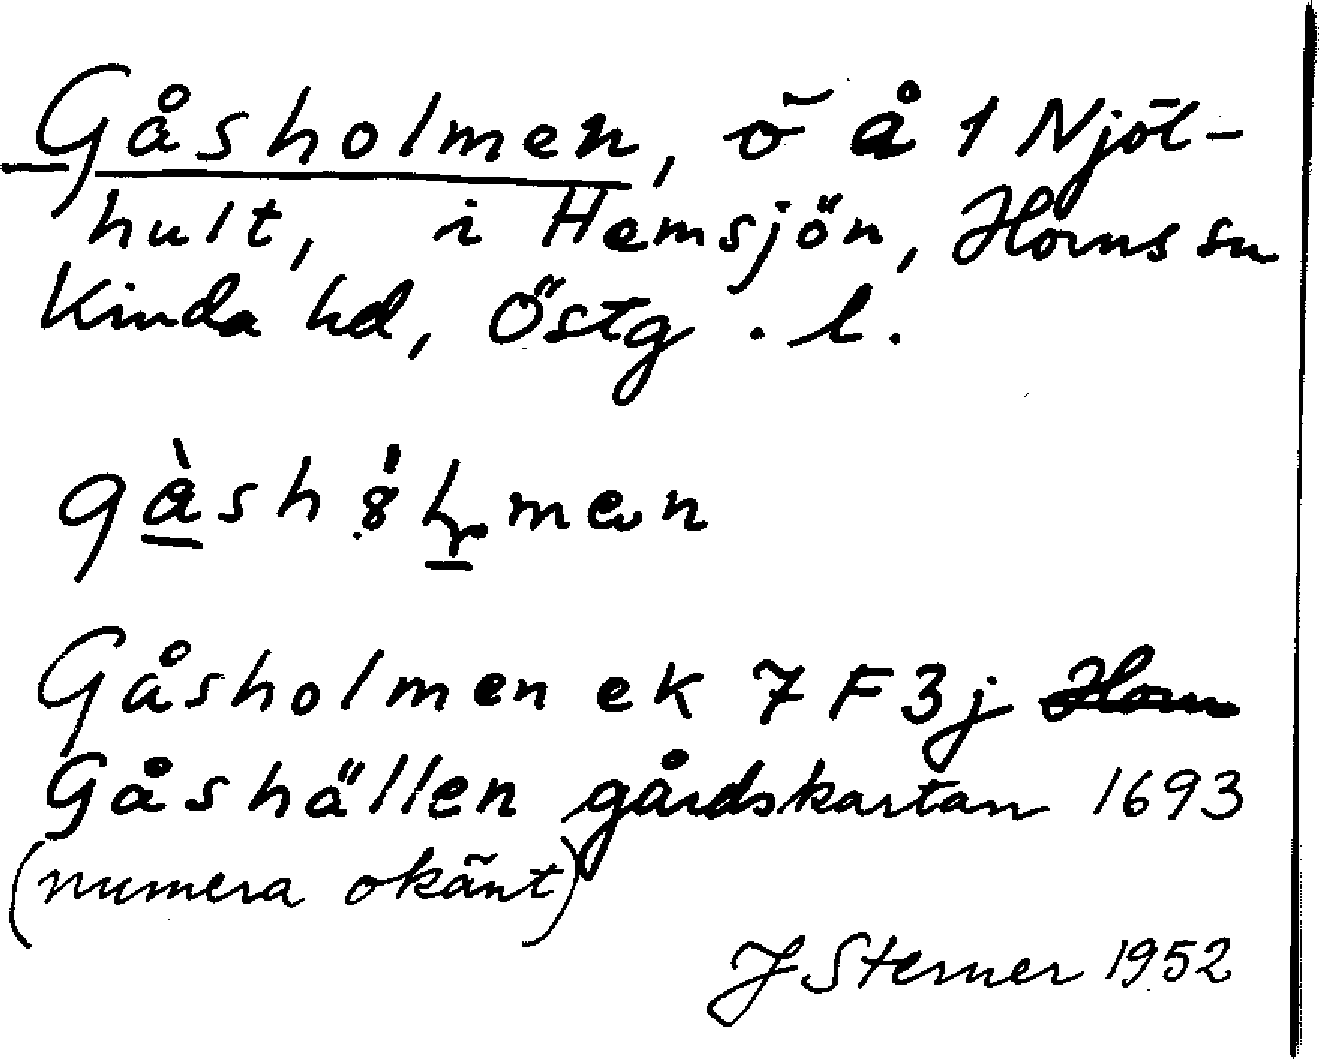 Gåsholmen, ö å 1 Njöl-
hult, i Hemsjön, Horns sn
Kinda hd, Östg. l.
Gåsholmen ek 7F3j Horn
Gåshällen gårdskartan 1693
(numera okänt)
J Sterner 1952